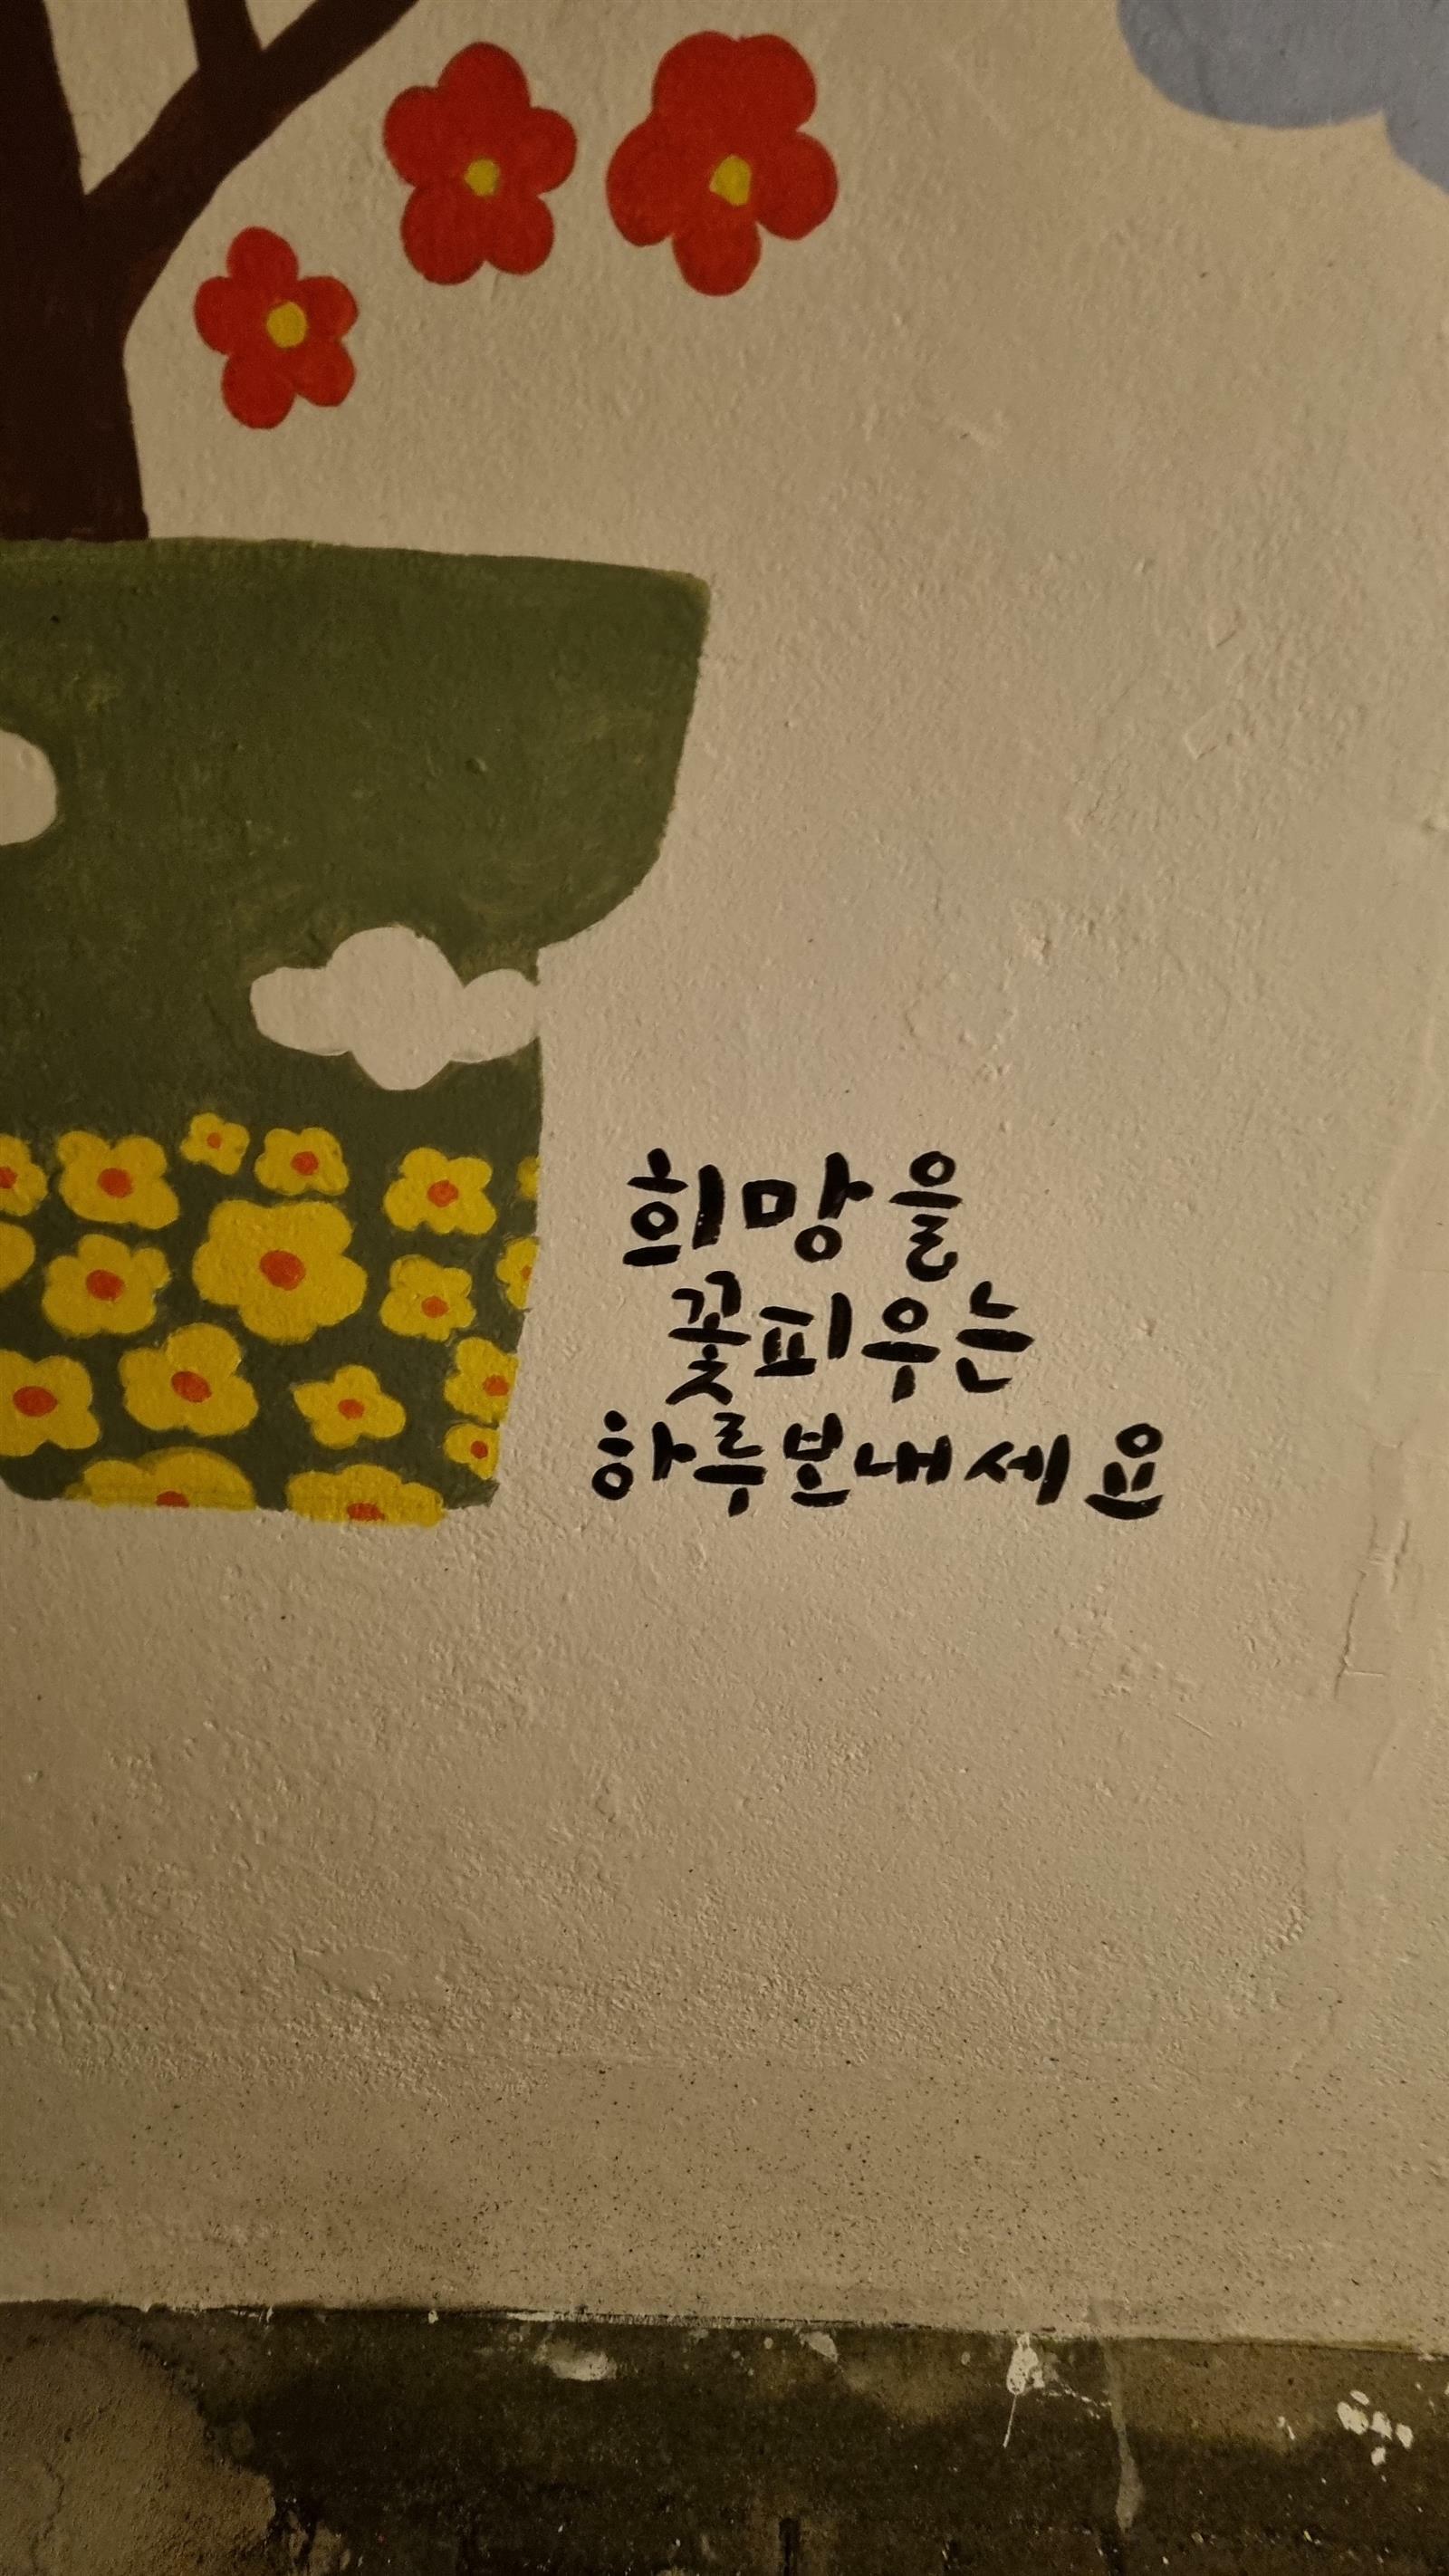 희망을
꽃피우는
하루보내세요